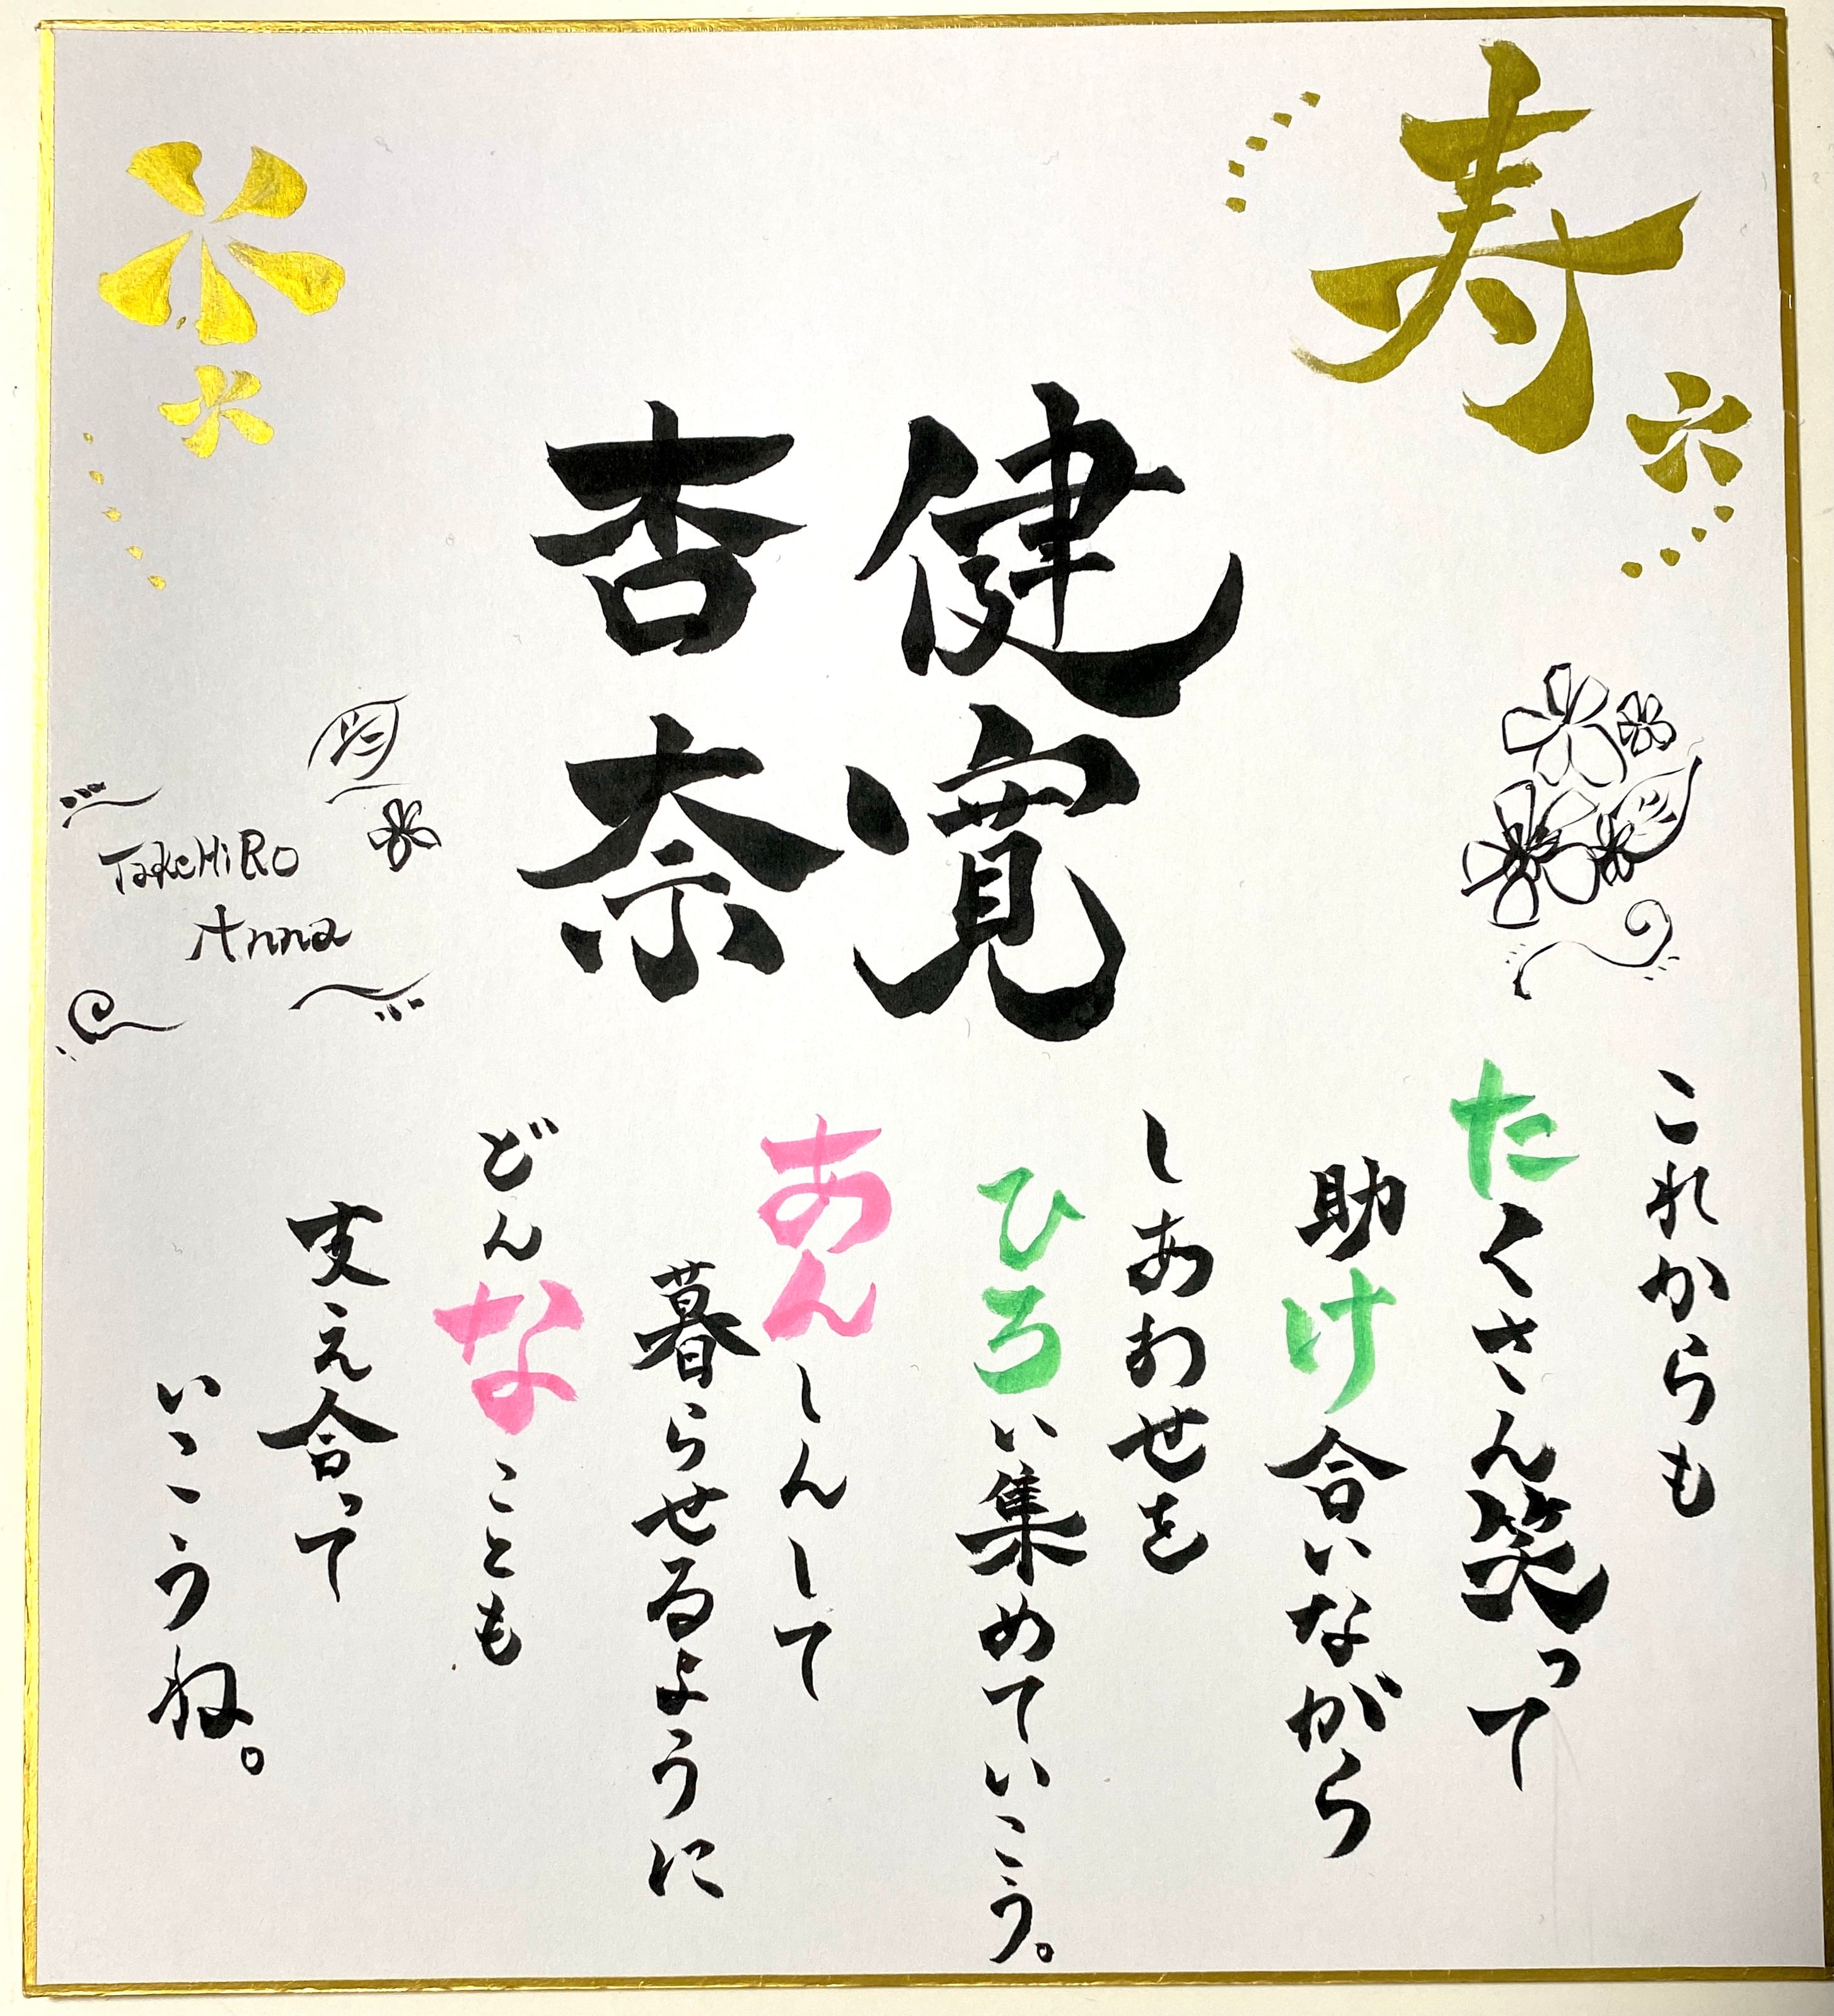 寿
健寛
杏奈
TakeHiRo
Anna
これからも
たくさん笑って
助け合いながら
しあわせを
ひろい集めていこう。
あんしんして
暮らせるように
どんなことも
支え合って
いこうね。